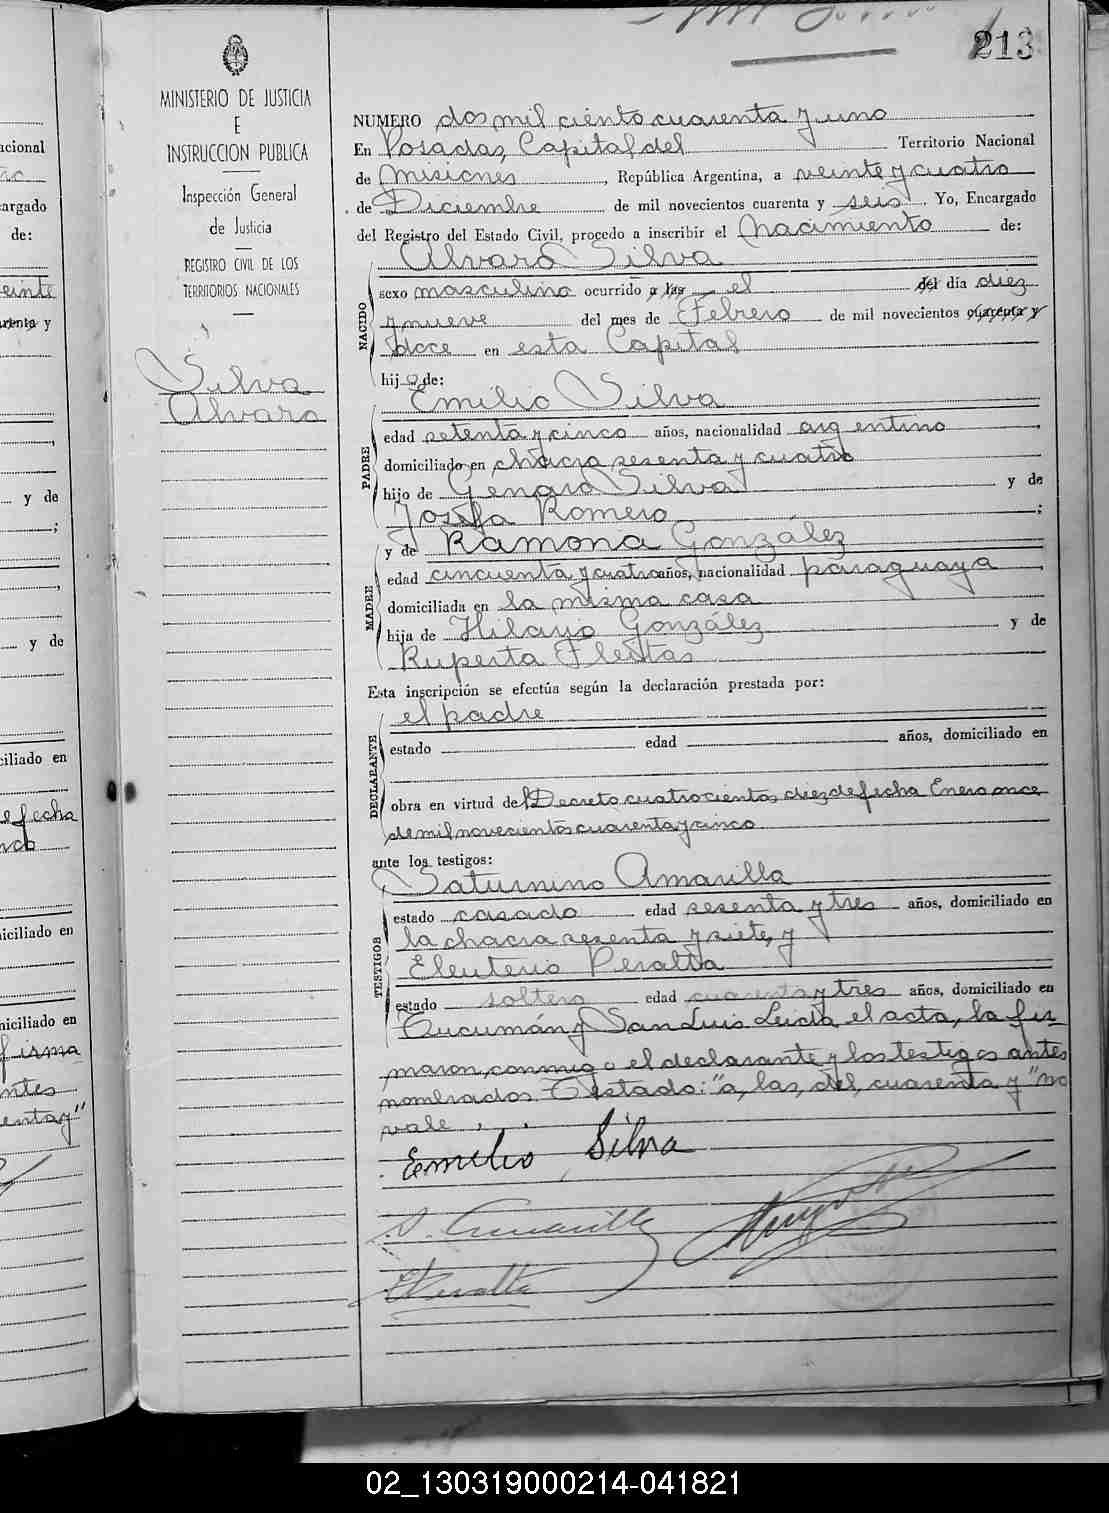 213
MINISTERIO DE JUSTICIA
E
INSTRUCCION PUBLICA
Inspección General
de Justicia
REGISTRO CIVIL DE LOS
TERRITORIOS NACIONALES
Silva
Alvaro
NUMERO dos mil ciento cuarenta y uno
En Posadas, Capital del Territorio Nacional
de Misiones, República Argentina, a veinte y cuatro
de Diciembre de mil novecientos cuarenta y seis. Yo, Encargado
del Registro del Estado Civil, procedo a inscribir el Nacimiento de:
NACIDO
Alvaro Silva
sexo masculino ocurrido a las el del día diez
y nueve del mes de Febrero de mil novecientos cuarenta y
doce en esta Capital
hijo de:
PADRE
Emilio Silva
edad setenta y cinco años, nacionalidad argentino,
domiciliado en chacra sesenta y cuatro
hijo de Genaro Silva y de
Josefa Romero;
MADRE
y de Ramona González
edad cincuenta y cuatro años, nacionalidad paraguaya,
domiciliada en la misma casa
hija de Hilario González y de
Ruperta Fleitas
Esta inscripción se efectúa según la declaración prestada por:
DECLARANTE
el padre
estado edad años, domiciliado en
obra en virtud del Decreto cuatrocientos diez de fecha Enero once
de mil novecientos cuarenta y cinco
ante los testigos:
TESTIGOS
Saturnino Amarilla
estado casado edad sesenta y tres años, domiciliado en
la chacra sesenta y siete, y
Eleuterio Peralta
estado soltero edad cuarenta y tres años, domiciliado en
Tucumán y San Luis Leida el acta, la fir-
maron, conmigo el declarante y los testigos antes
nombrados. Testado: "a, las, del, cuarenta y" no
vale.
Emilio Silva
S. Amarilla
E Peralta
acional
argado
de:
einte
arenta y
y de
;
,
y de
ciliado en
e fecha
nco
iciliado en
niciliado en
firma
ntes
enta y"
02_130319000214-041821